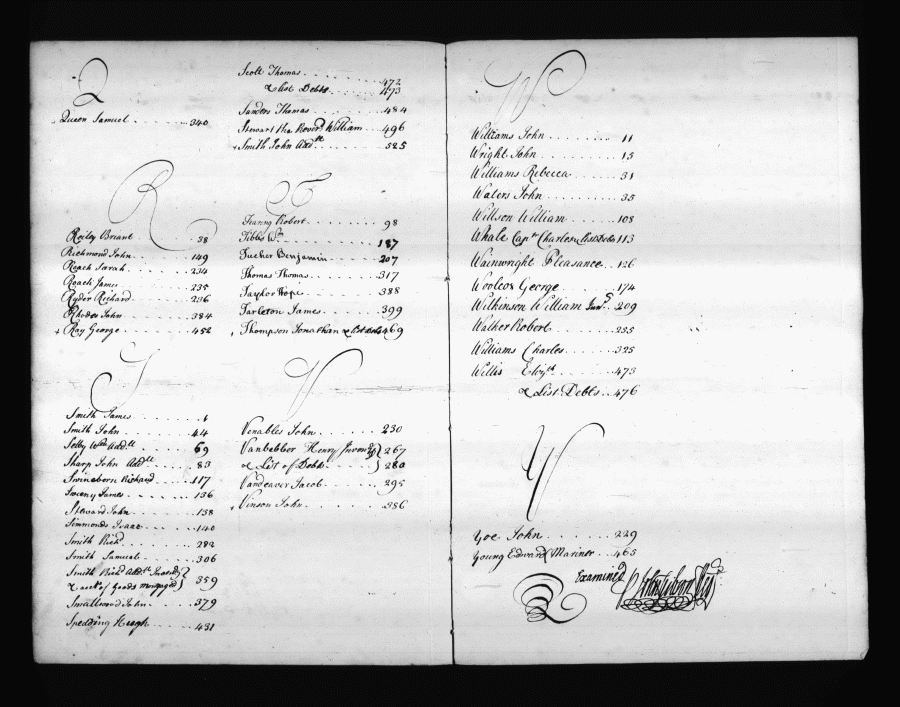 Q
Queen Samuel . . . . . 340
R
Reiley Briant . . . . . 38
Richmond John . . . . 149
Roach Sarah . . . . . 234
Roach James . . . . . 235
Ryder Richard . . . . 296
Rhodes John . . . . . 384
+ Ray George . . . . . 452
S
Smith James . . . . . 1
Smith John . . . . . 44
Selby Wm Addll . . . . 69
Sharp John Addll . . . 83
Swineborn Richard . . . 117
Sweny James . . . . . 136
Steward John . . . . . 138
Simmonds Isaac . . . . 140
Smith Richd . . . . . 282
Smith Samuel . . . . 306
Smith Richd Addll Inventy
& acct of Goods mortgaged } 359
Smallwood John . . . 379
Spedding Hugh . . . . 431
Scott Thomas . . . . . 472
& List Debts . . . . . 473
Sanders Thomas . . . . . 484
Stewart the Reverd William . . . 496
+ Smith John Addll . . . . . 525
T
Tranny Robert . . . . . 98
Tibbs Wm . . . . . 187
Tucker Benjamin . . . . . 207
Thomas Thomas . . . . . 317
Taylor Hope . . . . . 388
Tarleton James . . . . . 399
Thompson Jonathan & List debts 469
V
Venables John . . . . . 230
Vanbebber Henry Inventy } 267
& List of Debts . . . . } 280
Vandeaver Jacob . . . . . 295
Vinson John . . . . . 386
W
Williams John . . . . . 11
Wright John . . . . . 15
Williams Rebecca . . . . . 31
Waters John . . . . . 35
Willson William . . . . . 108
Whale Capt Charles & List Debts 113
Wainwright Pleasance . . 126
Woolcox George . . . . . 174
Wilkinson William Junr . . 209
Walker Robert . . . . . 255
Williams Charles . . . . . 325
Willis Elizth . . . . . 473
& List Debts . . 476
Y
Yoe John . . . . . 229
Young Edward Mariner . . . 465
Examined